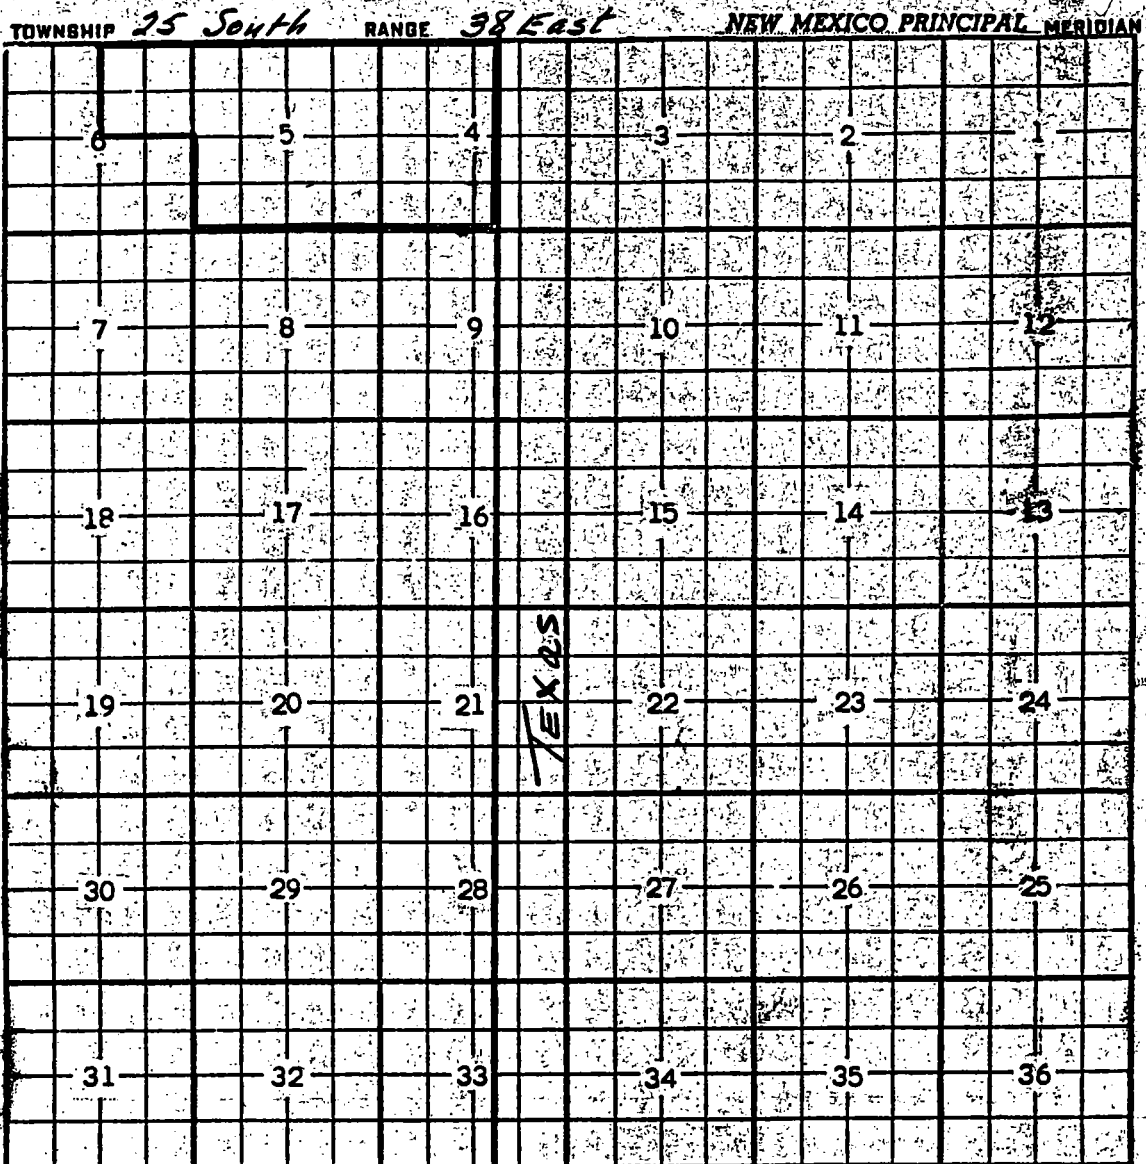 TOWNSHIP 25 South RANGE 38 East NEW MEXICO PRINCIPAL MERIDIAN
6 5 4 3 2 1
7 8 9 10 11 12
18 17 16 15 14 13
Texas
19 20 21 22 23 24
30 29 28 27 26 25
31 32 33 34 35 36